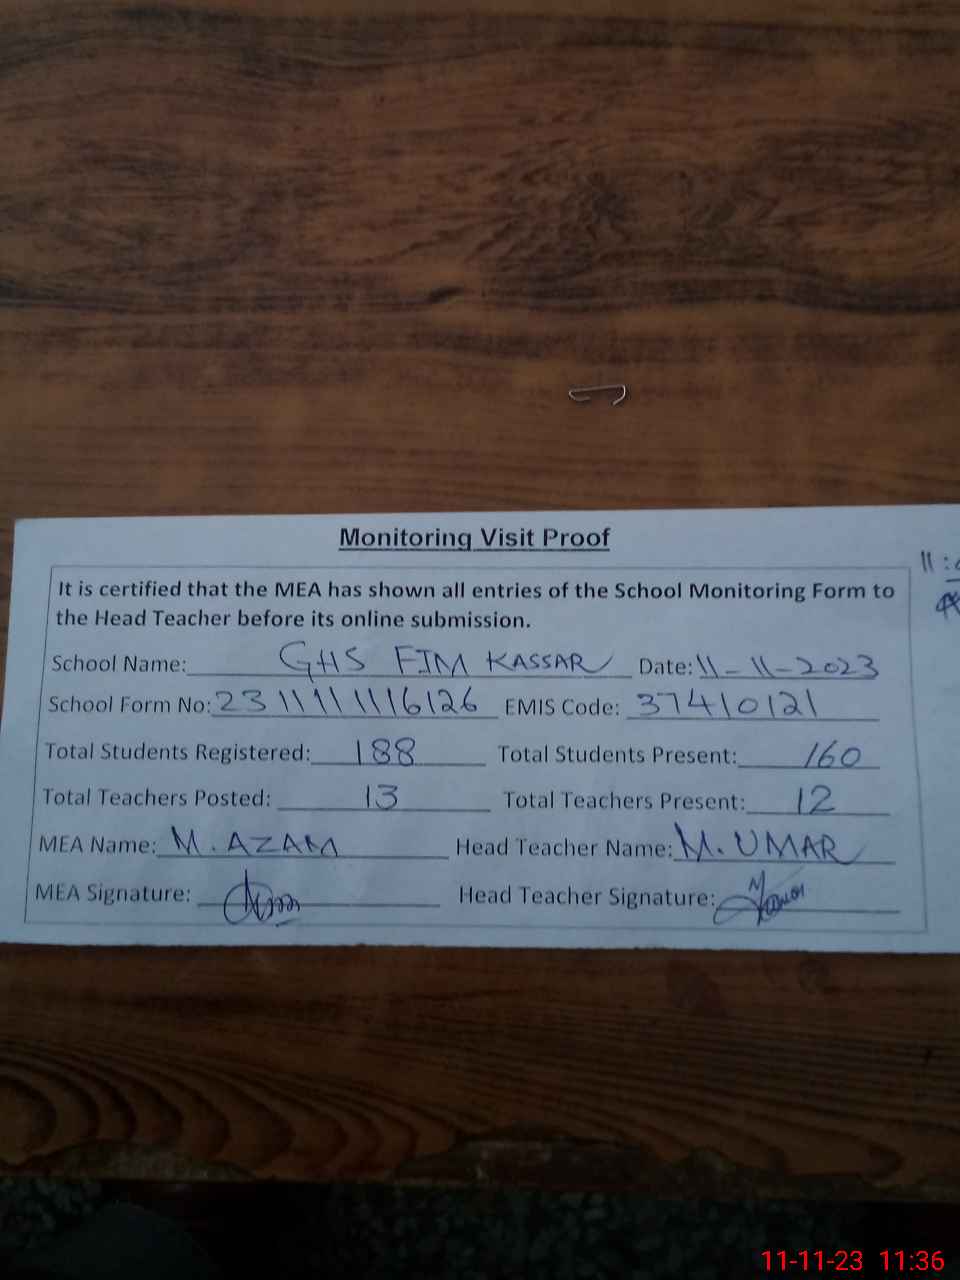 Monitoring Visit Proof
11:
It is certified that the MEA has shown all entries of the School Monitoring Form to
the Head Teacher before its online submission.
School Name: GHS FIM KASSAR Date: 11-11-2023
School Form No: 231111116126 EMIS Code: 37410121
Total Students Registered: 188 Total Students Present: 160
Total Teachers Posted: 13 Total Teachers Present: 12
MEA Name: M. AZAM Head Teacher Name: M. UMAR
MEA Signature: Head Teacher Signature:
11-11-23 11:36